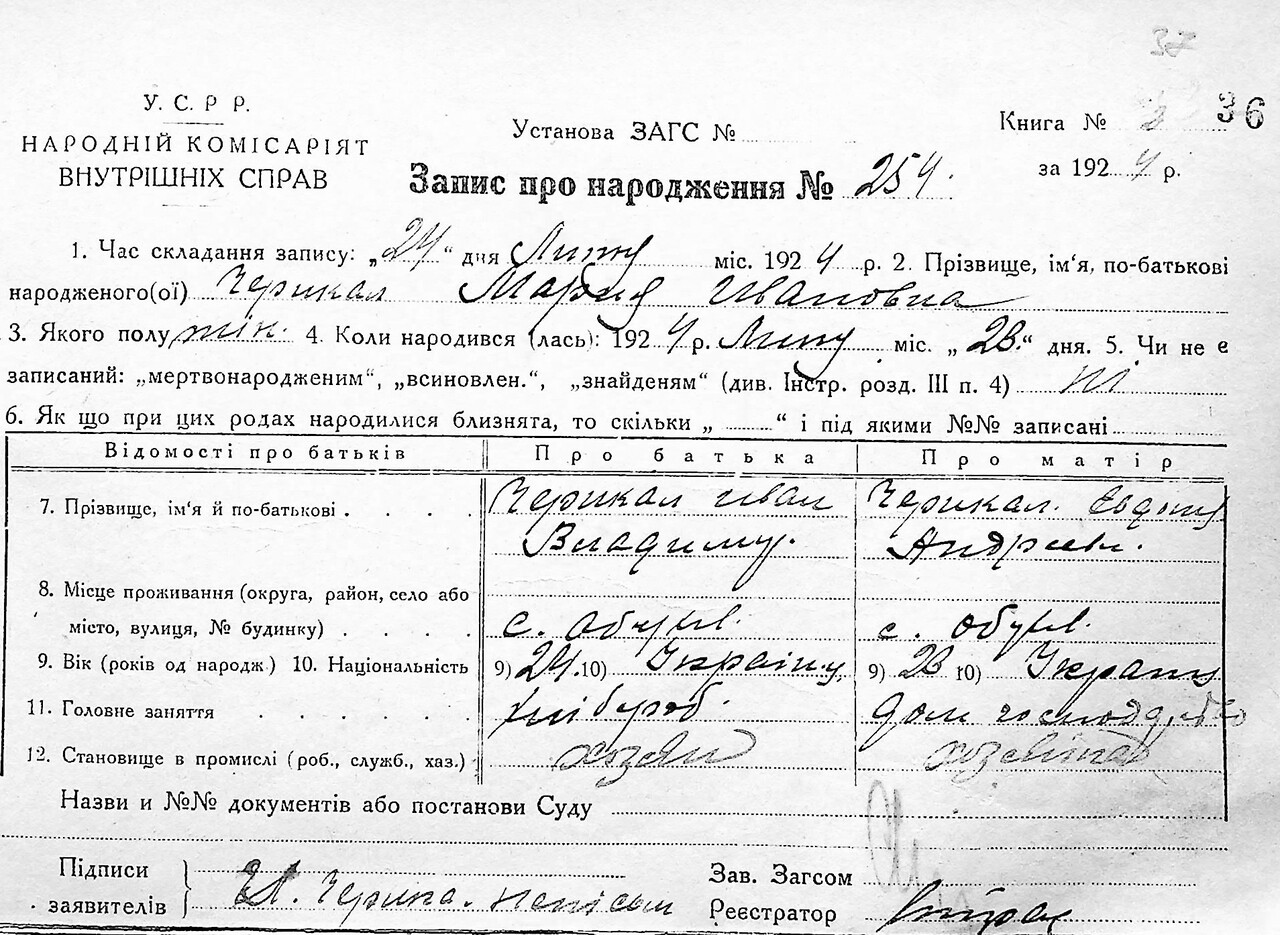 37
У. С. Р Р.
НАРОДНІЙ КОМІСАРІЯТ
ВНУТРІШНІХ СПРАВ
Установа ЗАГС №
Книга № 36
за 1924 р.
Запис про народження № 254.
1. Час складання запису: „24“ дня міс. 1924 р. 2. Прізвище, ім'я, по-батькові
народженого(ої) Черикал Мария Ивановна
3. Якого полу жін. 4. Коли народився (лась): 1924 р. міс. „23.“ дня. 5. Чи не є
записаний: „мертвонародженим“, „всиновлен.“, „знайденям“ (див. Інстр. розд. III п. 4) ні
6. Як що при цих родах народилися близнята, то скільки „ “ і під якими №№ записані
Відомості про батьків Про батька Про матір
7. Прізвище, ім'я й по-батькові . . . . Черикал Иван Черикал
Владимир. Андріев.
8. Місце проживання (округа, район, село або
місто, вулиця, № будинку) . . . . с. с.
9. Вік (років од народж.) 10. Національність 9) 24. 10) Українц. 9) 23 10) Українц
11. Головне заняття . . . . . . хлібороб. дом господарство
12. Становище в промислі (роб., служб., хаз.) хозяин
Назви и №№ документів або постанови Суду
Підписи
заявителів
Зав. Загсом
Реєстратор